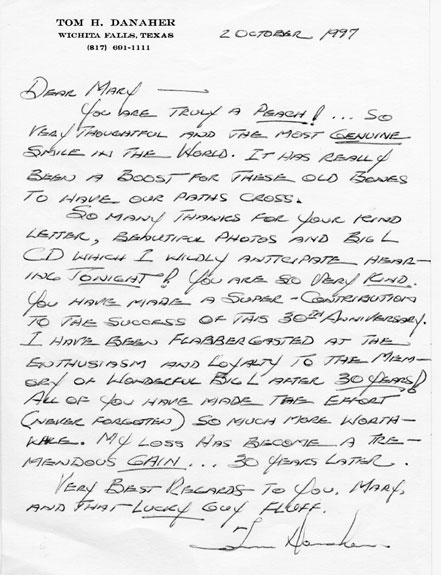 TOM H. DANAHER
WICHITA FALLS, TEXAS
(817) 691-1111
2 OCTOBER 1997
DEAR MARY —
YOU ARE TRULY A PEACH! ... SO
VERY THOUGHTFUL AND THE MOST GENUINE
SMILE IN THE WORLD. IT HAS REALLY
BEEN A BOOST FOR THESE OLD BONES
TO HAVE OUR PATHS CROSS.
SO MANY THANKS FOR YOUR KIND
LETTER, BEAUTIFUL PHOTOS AND BIG L
CD WHICH I WILDLY ANTICIPATE HEAR-
ING TONIGHT! YOU ARE SO VERY KIND.
YOU HAVE MADE A SUPER-CONTRIBUTION
TO THE SUCCESS OF THIS 30TH ANNIVERSARY.
I HAVE BEEN FLABBERGASTED AT THE
ENTHUSIASM AND LOYALTY TO THE MEM-
ORY OF WONDERFUL BIG L AFTER 30 YEARS!
ALL OF YOU HAVE MADE THE EFFORT
(NEVER FORGOTTEN) SO MUCH MORE WORTH-
WHILE. MY LOSS HAS BECOME A TRE-
MENDOUS GAIN... 30 YEARS LATER.
VERY BEST REGARDS TO YOU, MARY,
AND THAT LUCKY GUY FLUFF.
Tom Danaher